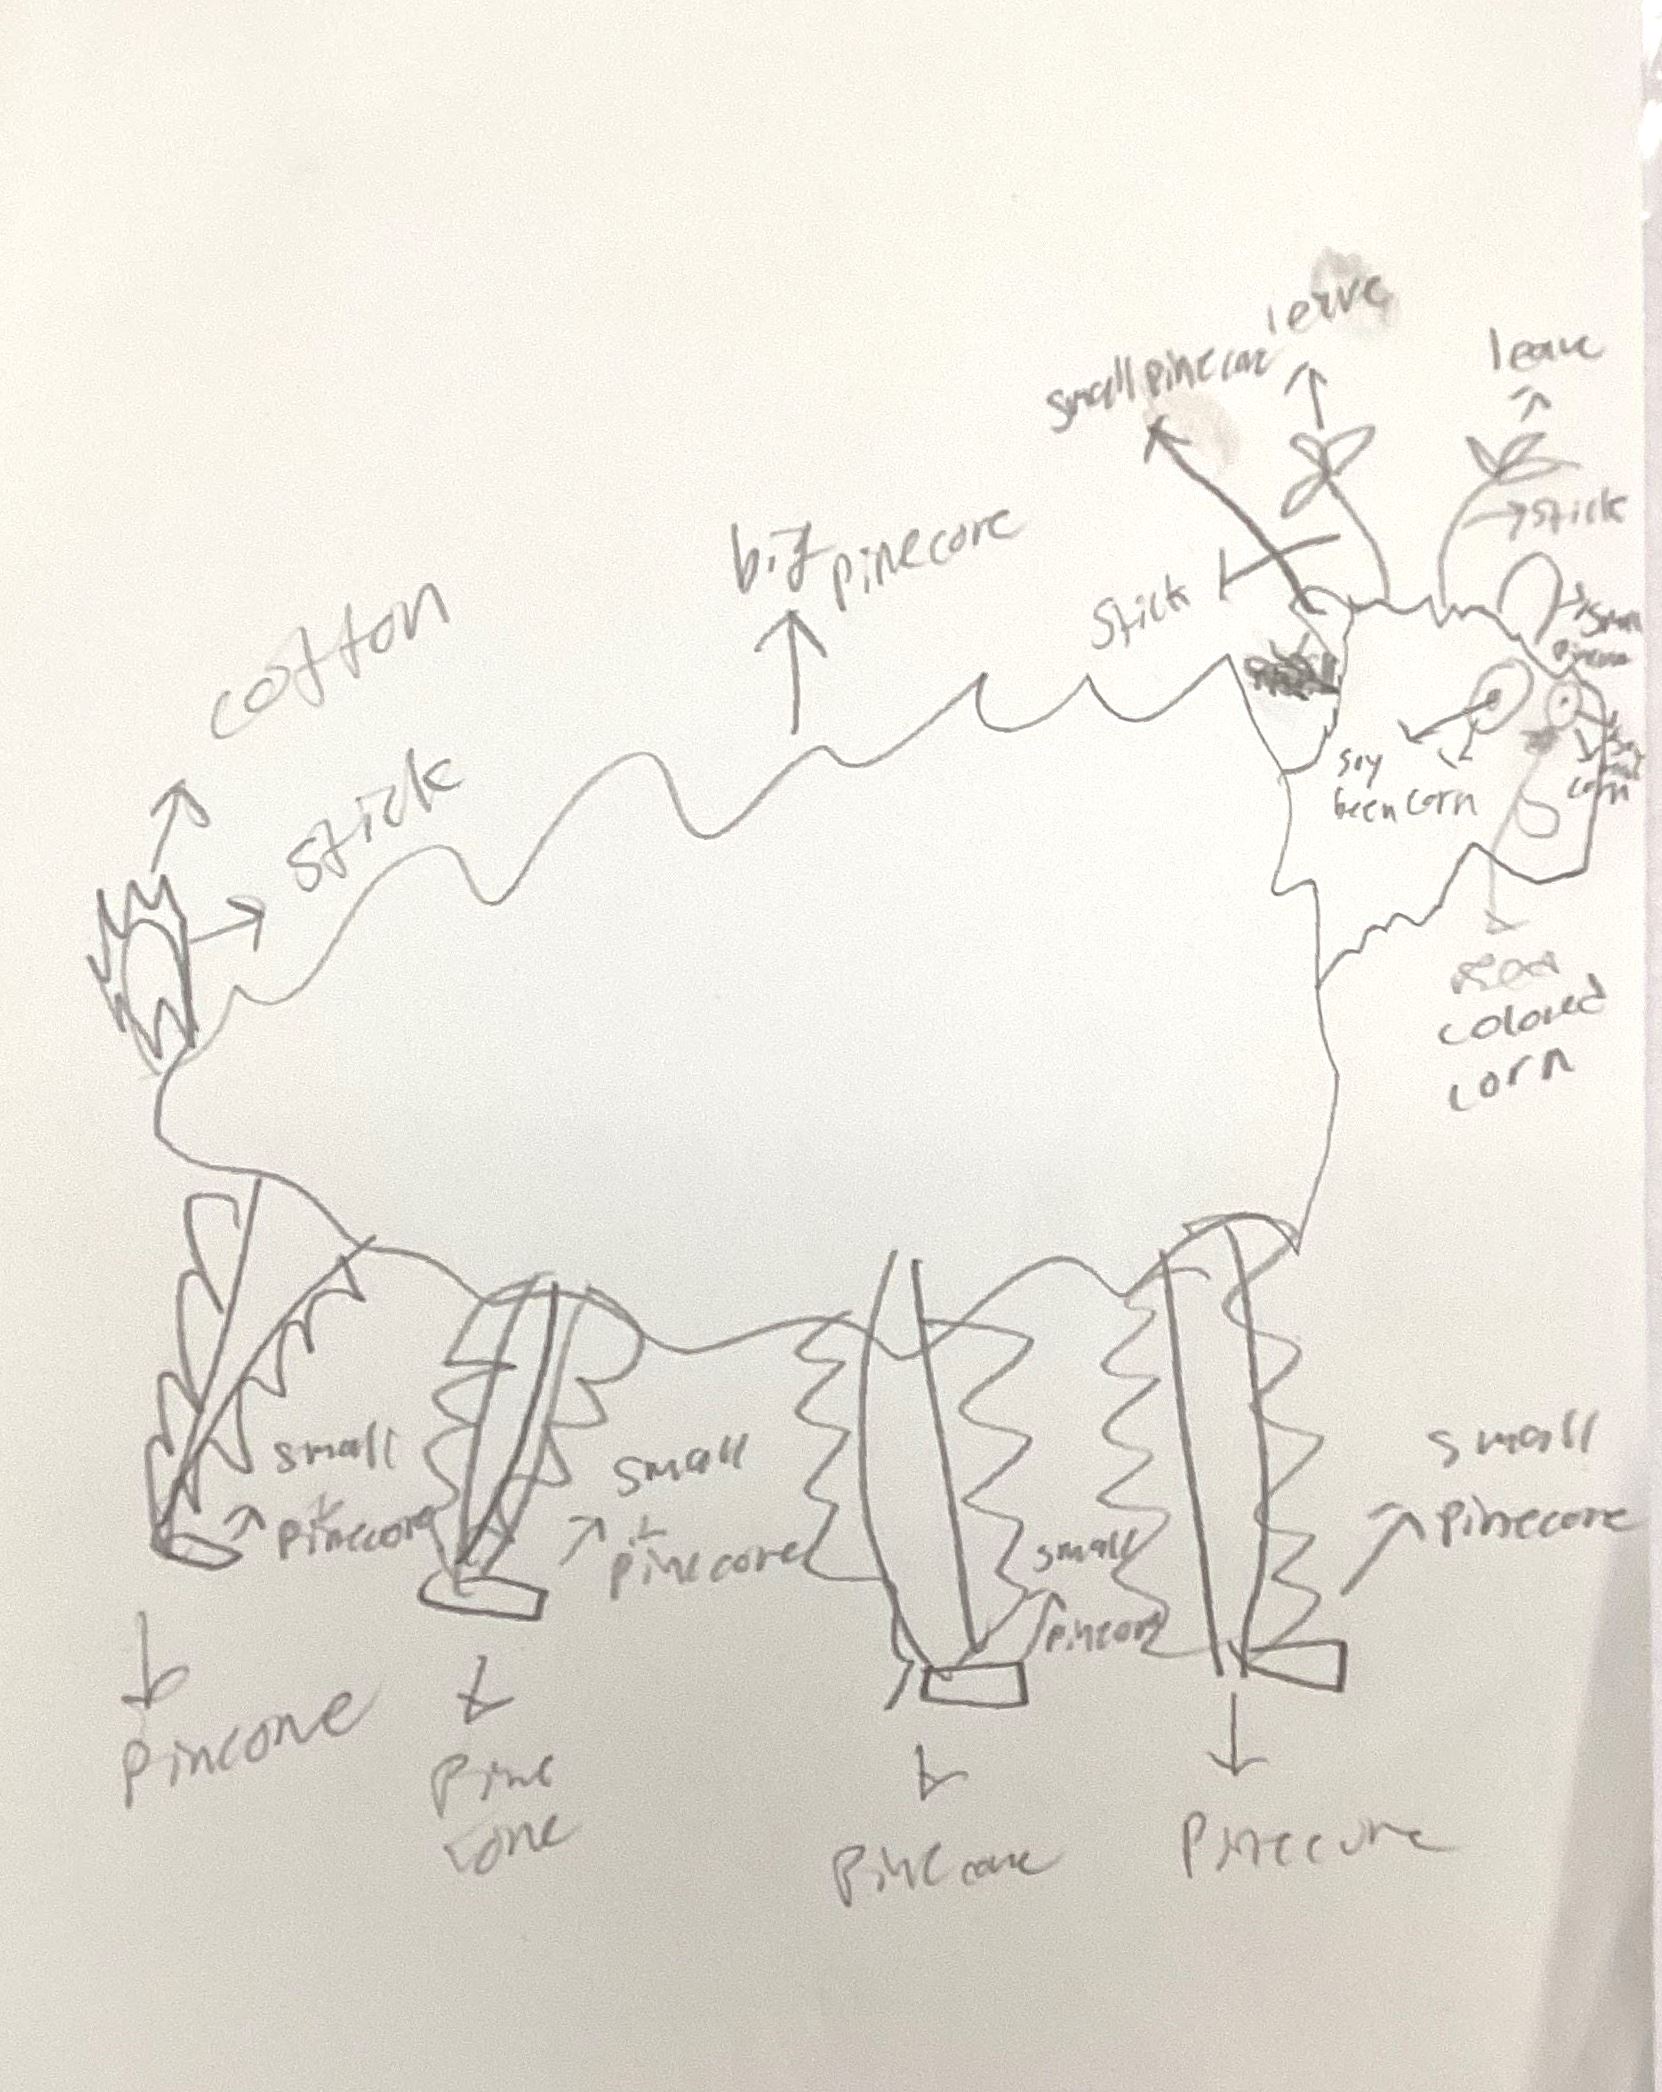 leave
leave
small pinecone
stick
big pinecone
stick
cotton
stick
small
soy
been corn
corn
colored
corn
small
pinecone
small
pinecone
small
pinecone
small
pinecone
pincone
pine
cone
pinecone
pinecone